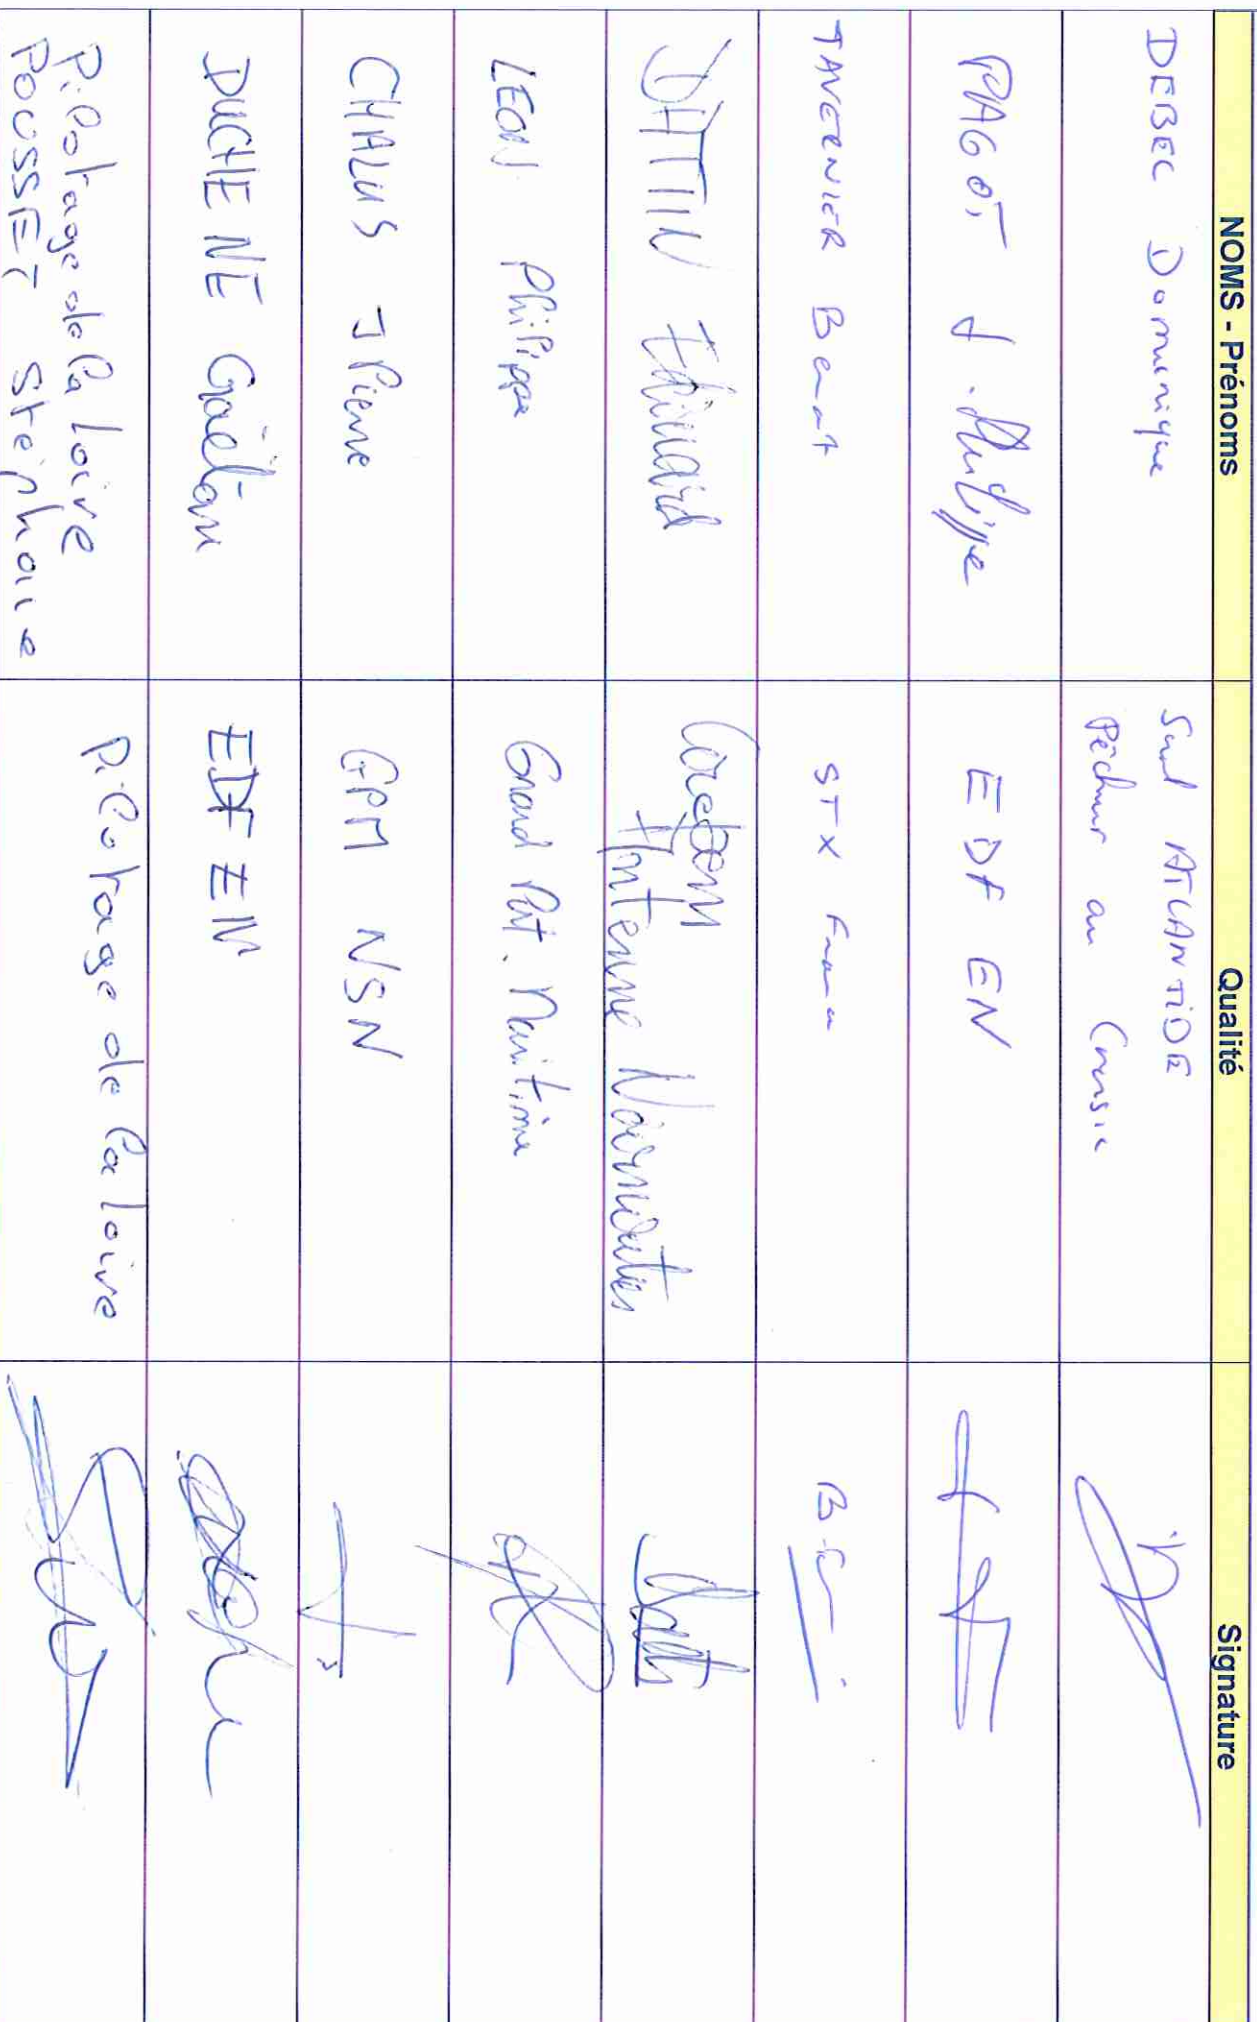 NOMS - Prénoms Qualité Signature
DEBEC Dominique
Sarl ATLANTIDE
Pêcheur au Croisic
PAGOT J. Philippe
EDF EN
TAVERNIER Benoit
STX France
DATTIN Edouard
Corepem
Antenne Noirmoutier
LEON Philippe
Grand Port Maritime
CHALUS J Pierre
GPM NSN
DUCHENE Gaëtan
EDF EN
Pilotage de la Loire
POUSSET Stéphane
Pilotage de la Loire